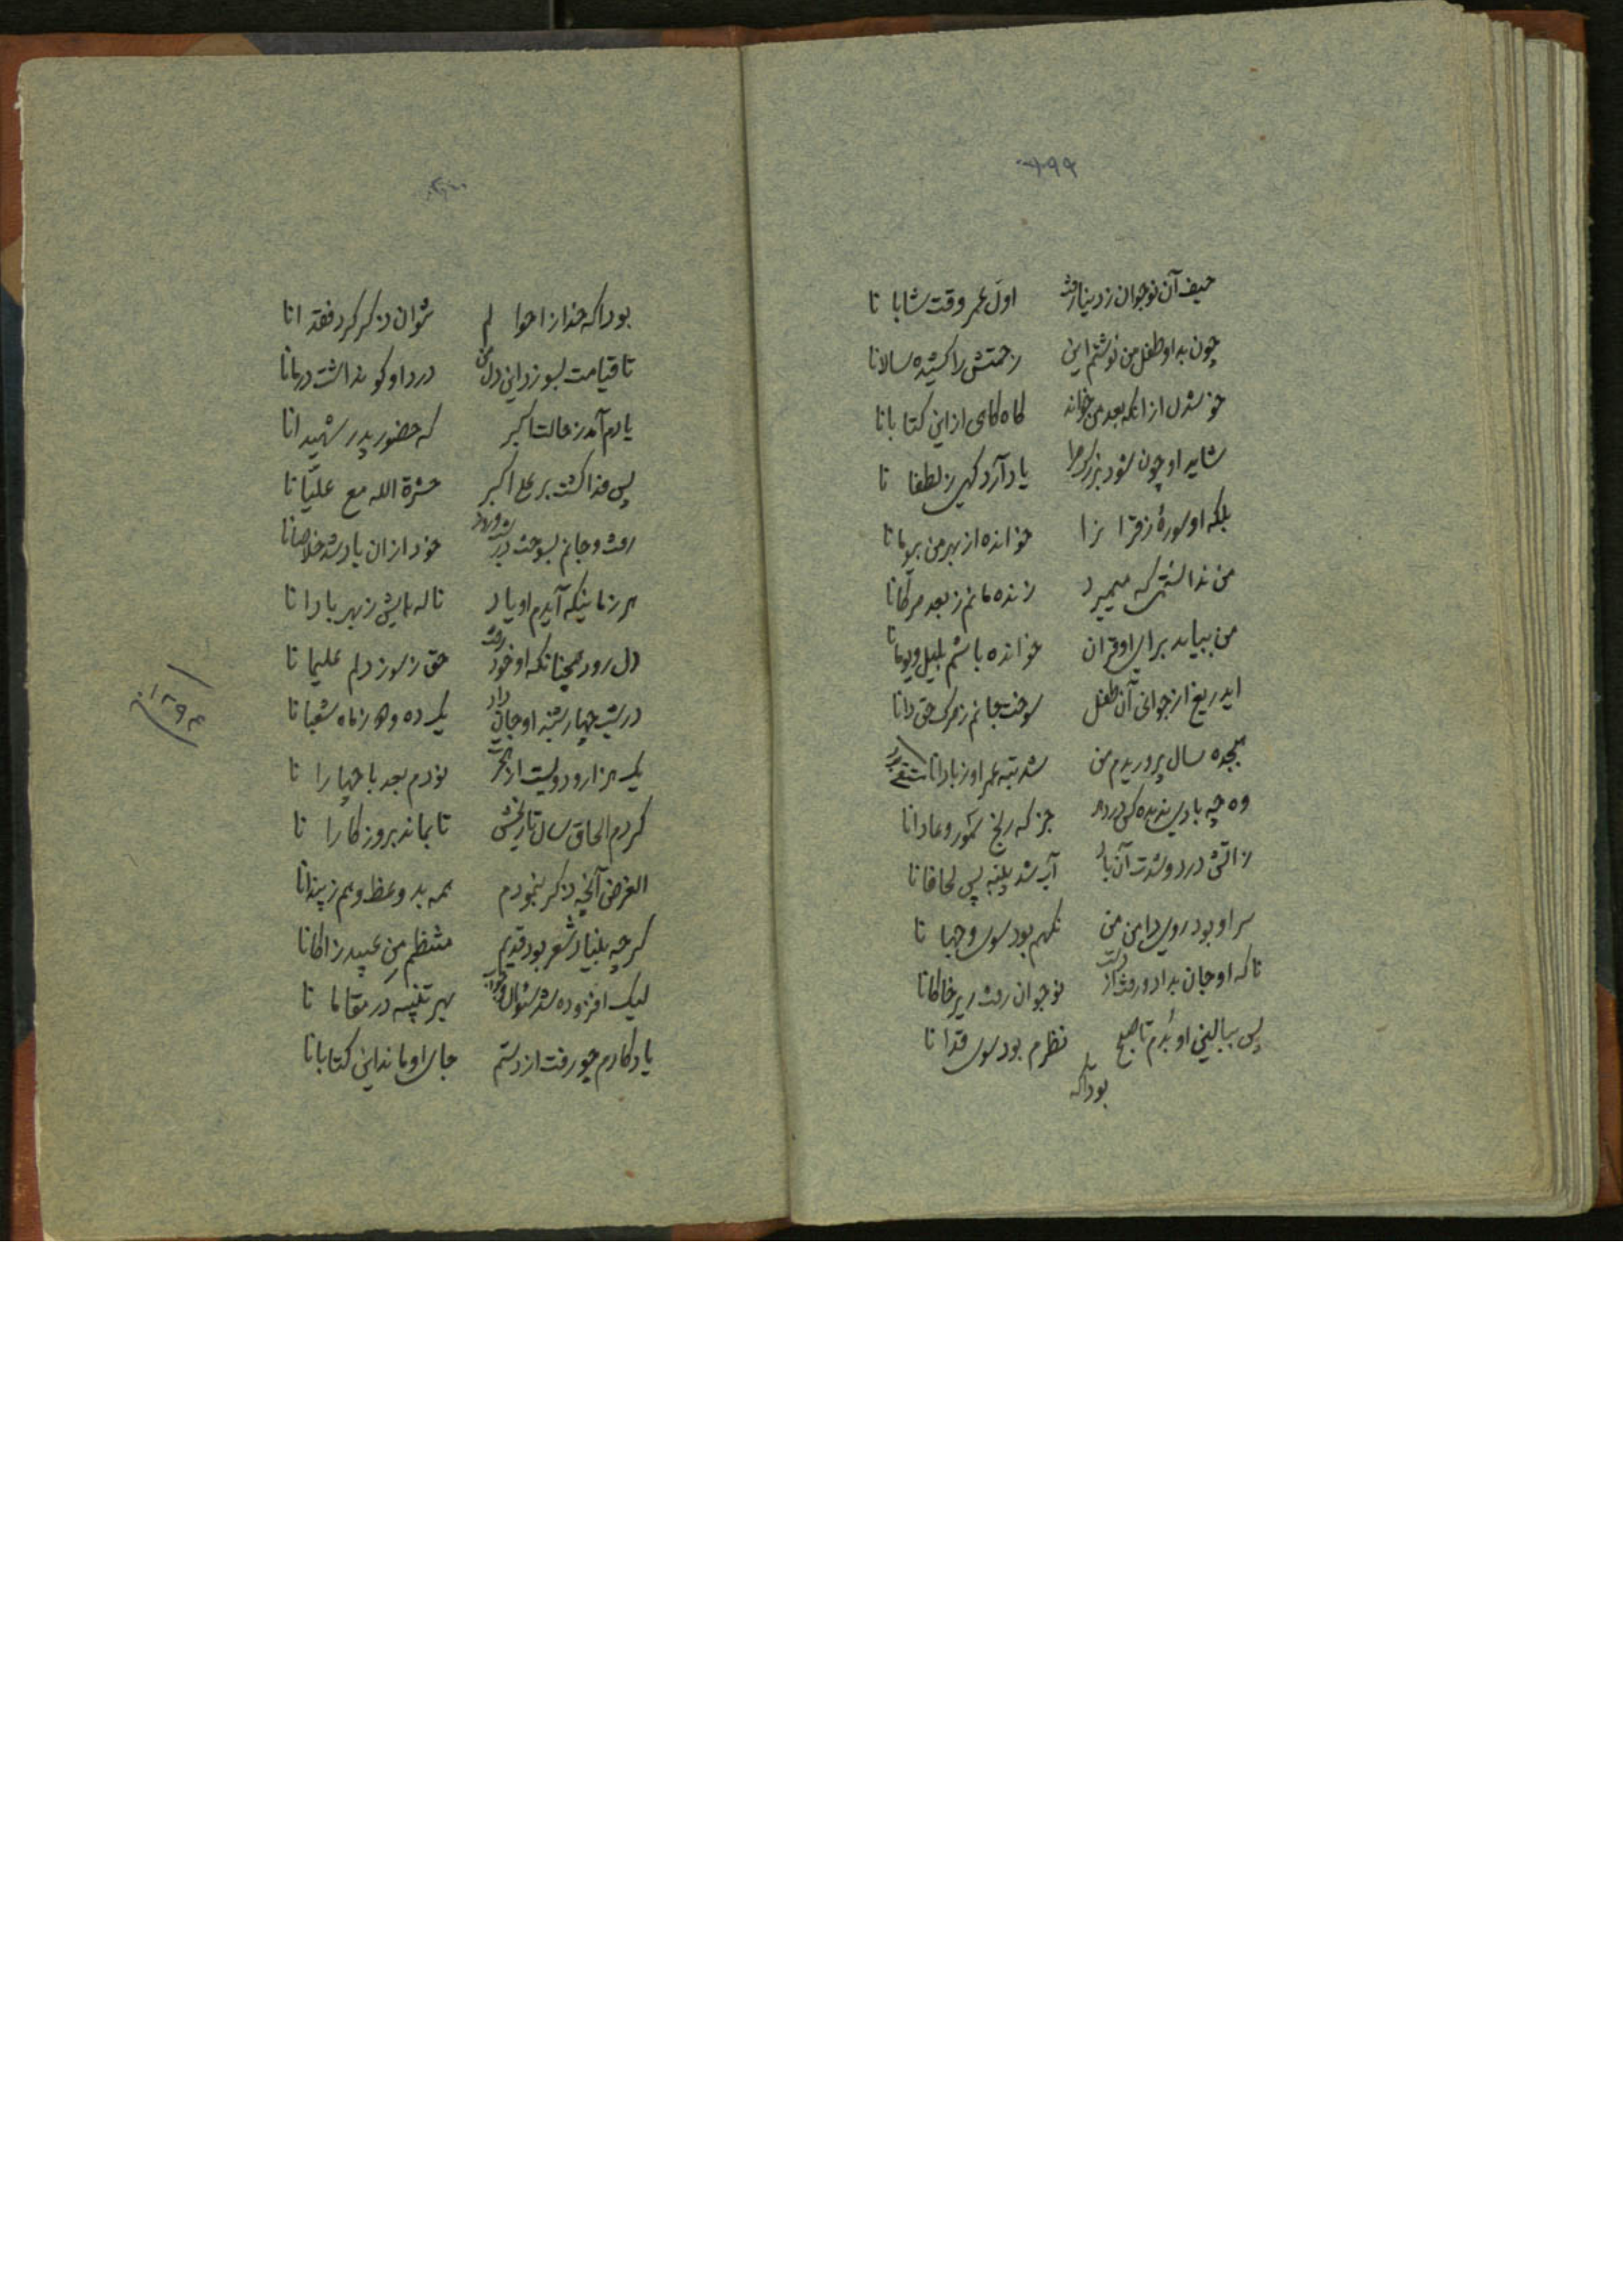 ۳۹۹
حیف آن نوجوان ز دنیا رفت اول عمر وقت شابا نا
چون بد او طفل من نوشتم این زحمتش را کشیده سالانا
خوشدل از انکه بعد من خواند کاه کاهی از این کتابانا
شاید او چون شود بزرک مرا یاد آرد کهی ز لطفا نا
بلکه او سورۀ ز قرا نرا خوانده از بهر من بروما نا
من ندانستم که میمیرد زنده مانم ز بعد مرکانا
من بیاید برای او قران خوانده باشم بلیل و یومانا
ایدریغ از جوانی آن طفل سوخت جانم ز مرک حق دانا
هیجده سال پروریدم من شد تبه عمر او ز بادانا
وه چه بادی ندیده کس در دهر جز که بلخ و عادانا
ز اتش درد وشدت آن باد آب شد پنبه پس لحافانا
سر او بود روی دامن من نکهم بود سوی وجها نا
تا که او جان بداد و رفت از دست نوجوان رفت زیر خاکانا
پس ببالین او بدم تا صبح نظرم بود سوی قدا نا
بود اکه
بود اکه خدا ز احوا لم نتوان ذکر کرد فقدا نا
تا قیامت بسوزد این دل من درد او کو نداشت درمانا
یادم آمد ز حالت اکبر که حضور پدر شهیدا نا
پس فدا کشت بر علی اکبر حشرة الله مع علیّا نا
رفت و جانم بسوخت خود از ان باد شد خلاصانا
هر زمانیکه آیدم او یاد ناله هایش ز بهر بادا نا
دل رود همچنانکه او خود رفت حق ز سوز دلم علیما نا
در شب چهار شنبه او جان داد یک ده و ماه شعبا نا
یک هزار و دویست از هجرت نودم بعد با چهارا نا
کردم الحاق سال تاریخش تا بماند بروزکارا نا
الغرض آنچه ذکر بنمودم همه بد وعظ و هم ز پندانا
کرچه بنیاد شعر بود قدیم منتظم من عبید زاکانا
لیک افزوده شد بهر تنبیه در مقاما نا
یادکارم چو رفت از دستم جای او ماند این کتابانا
۱۲۹۴